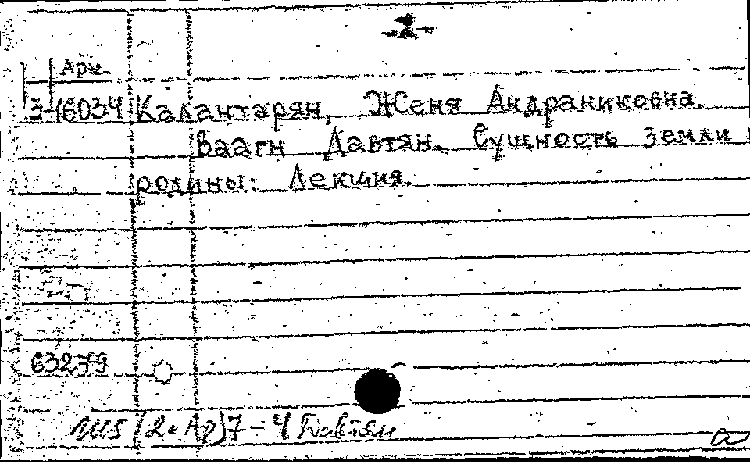 -2-
Арм
3-16034 Калантарян, Женя Андраниковна.
Ваагн Давтян. Сущность земли
родины: Лекция.
63279
Ш5(2=Ар)7-4 Давтян